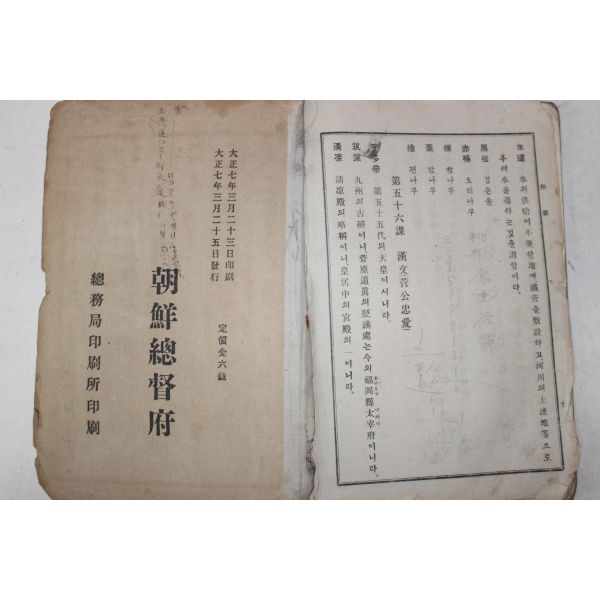 水道 水의供給이不便한地에鐵管을敷設하고河川의上流地等으로
부터水를導하는것을謂함이라。
黑松 검은솔
赤楊 오리나무
櫟 참나무
栗 밤나무
檜 전나무
第五十六課 漢文菅公忠愛
帝 第五十五代의天皇이시니라。
筑紫 九州의古稱이니、菅原道眞의貶謫處는今의福岡縣太宰府이니라。
淸凉 淸凉殿의略稱이니、皇居中의宮殿의一이니라。
附錄
十
大正七年三月二十三日印刷
大正七年三月二十五日發行
定價金六錢
朝鮮總督府
總務局印刷所印刷